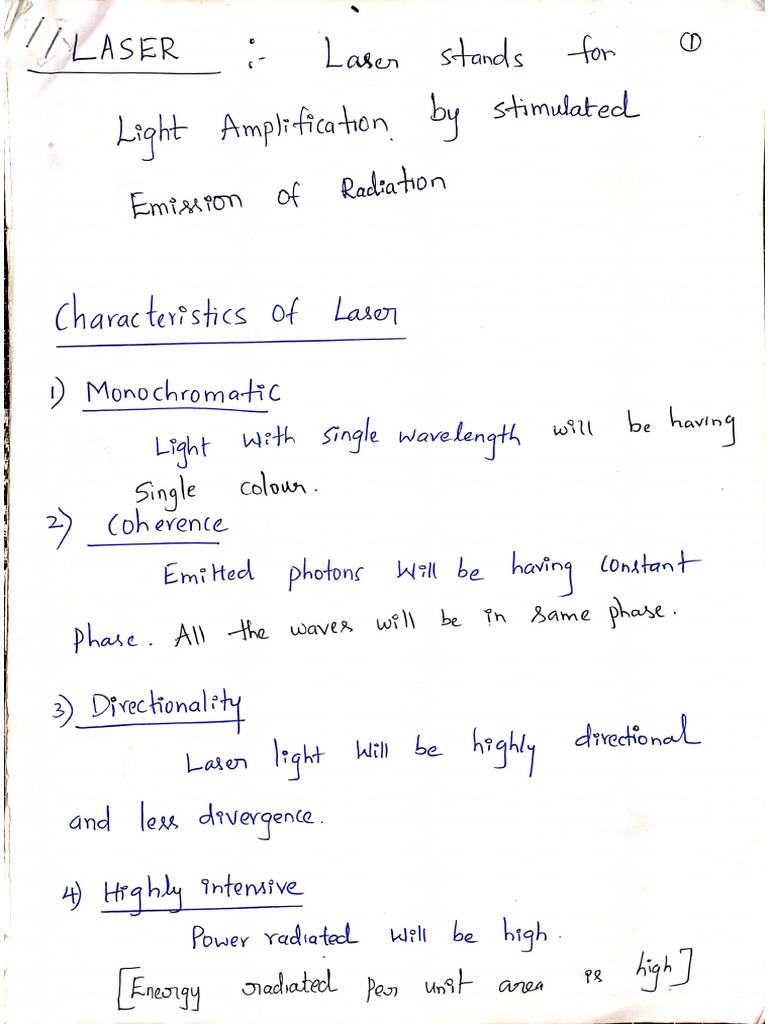 LASER :- Laser stands for ①
Light Amplification by stimulated
Emission of Radiation
Characteristics of Laser
1) Monochromatic
Light with single wavelength will be having
Single colour.
2) Coherence
Emitted photons will be having constant
phase. All the waves will be in same phase.
3) Directionality
Laser light will be highly directional
and less divergence.
4) Highly intensive
Power radiated will be high.
[Energy radiated per unit area is high]